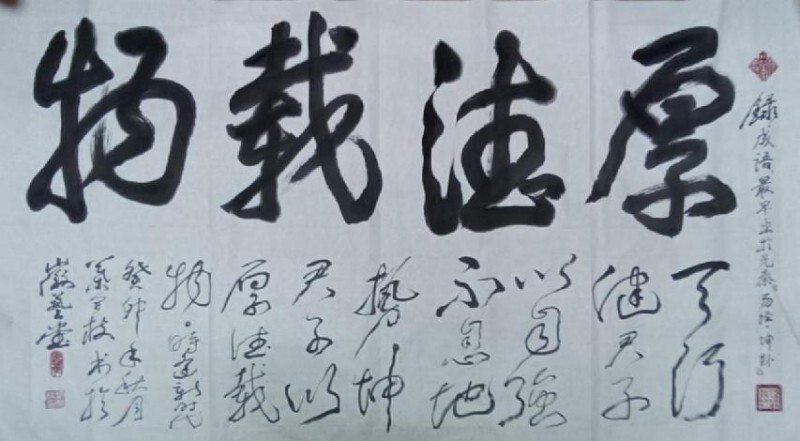 録成语最早出於先秦周易坤卦
厚德載物
天行
健君子
以自強
不息地
勢坤
君子以
厚德載
物 時逢新时代
癸卯年秋月
书於
堂